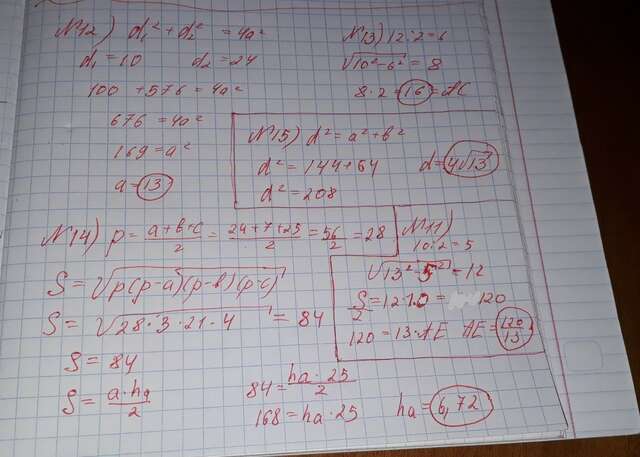 №12) d₁² + d₂² = 4a²
d₁ = 10 d₂ = 24
100 + 576 = 4a²
676 = 4a²
169 = a²
a = 13
№13) 12:2 = 6
√10²-6² = 8
8·2 = 16 = AC
№15) d² = a² + b²
d² = 144 + 64
d² = 208
d = 4√13
№14) p = (a+b+c)/2 = (24+7+25)/2 = 56/2 = 28
S = √p(p-a)(p-b)(p-c)
S = √28·3·21·4 = 84
S = 84
S = (a·hₐ)/2
84 = (ha·25)/2
168 = ha·25
ha = 6,72
№11)
10:2 = 5
√13²-5² = 12
S/2 = 12·10 = 120
120 = 13·AE AE = 120/13